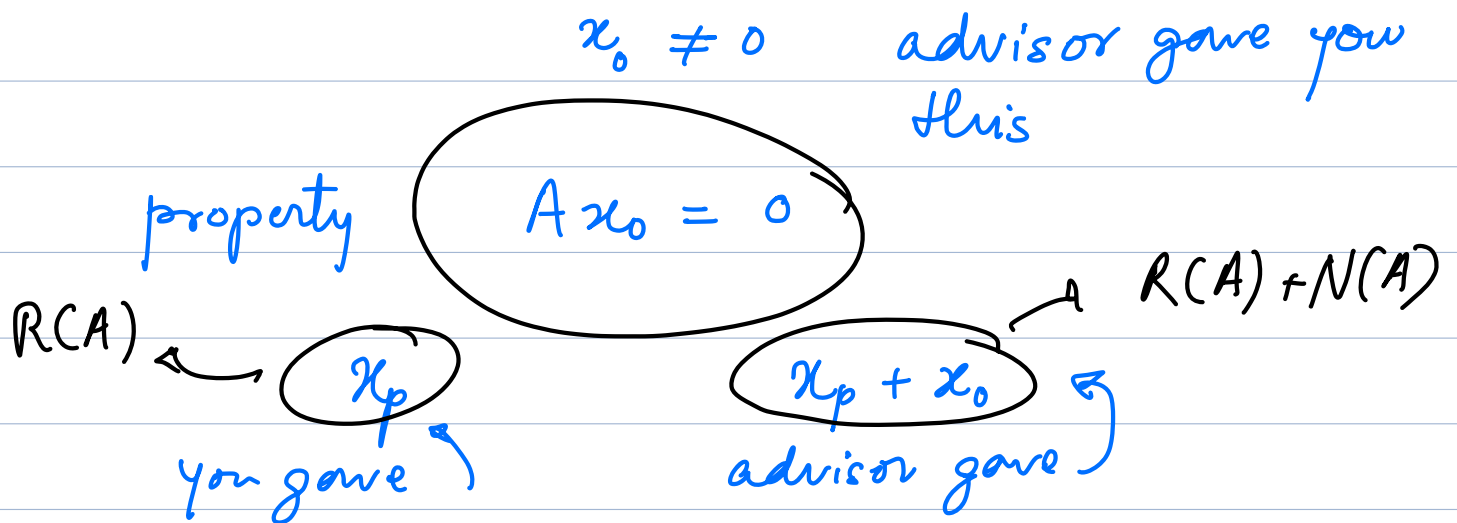 x₀ ≠ 0 advisor gave you
this
property A x₀ = 0
R(A) + N(A)
R(A)
x_p x_p + x₀
you gave advisor gave